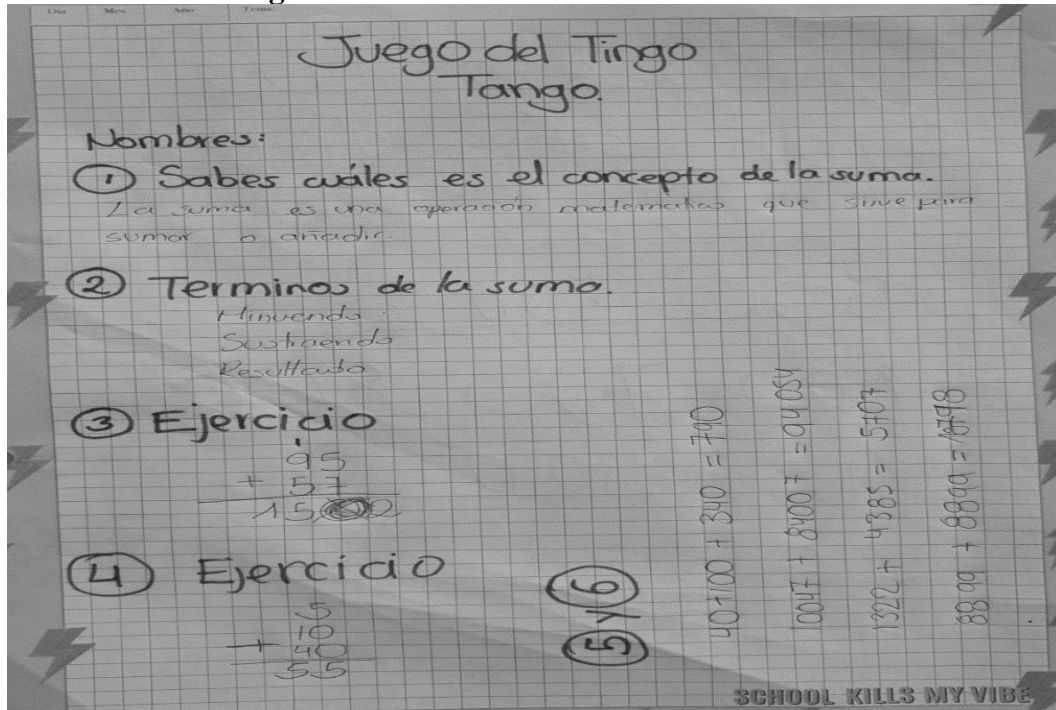 Día Mes Año Tema
Juego del Tingo
Tango.
Nombres:
① Sabes cuáles es el concepto de la suma.
La suma es una operación matematica que sirve para
sumar o añadir.
② Terminos de la suma.
Minuendo
Sustraendo
Resultado
③ Ejercicio
1
95
+ 57
152
④ Ejercicio
5
10
+ 40
55
⑤ y ⑥
40+100 + 340 = 790
10047 + 84007 = 94054
1322 + 4385 = 5707
8899 + 8899 = 16798
SCHOOL KILLS MY VIBE